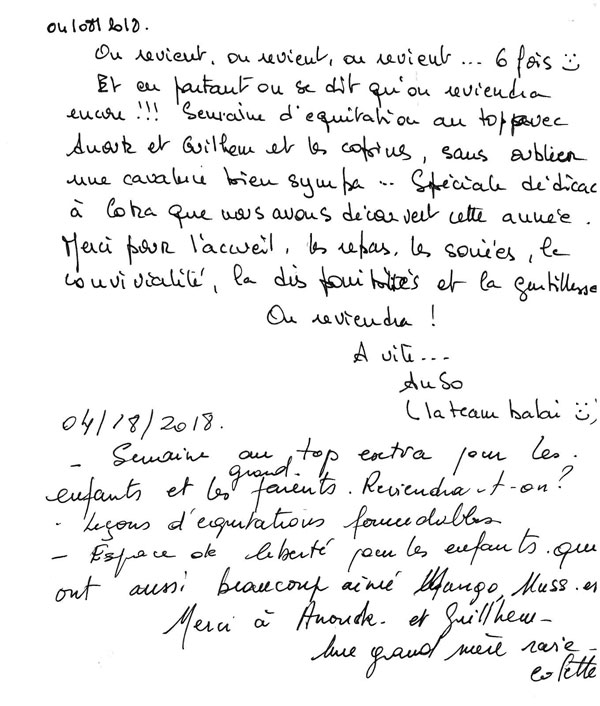 04/08/2018.
On revient, on revient, on revient ... 6 fois :)
Et en partant on se dit qu'on reviendra
encore !!! Semaine d'equitation au top avec
Anouk et Guilhem et les copains, sans oublier
une cavalerie bien sympa ... Spéciale dédicac
à Cora que nous avons découvert cette année.
Merci pour l'accueil, les repas, les soirées, la
convivialité, la disponibilités et la gentillesse
On reviendra !
A vite ...
AuSo
(la team balai :)
04/18/2018.
- Semaine au top extra pour les
enfants et les grand-parents. Reviendra-t-on ?
- Leçons d'equitations formidables
- Espace de liberté pour les enfants. qui
ont aussi beaucoup aimé Mango, Muss. et
Merci à Anouck. et Guillhem -
Une grand mère ravie -
Colette